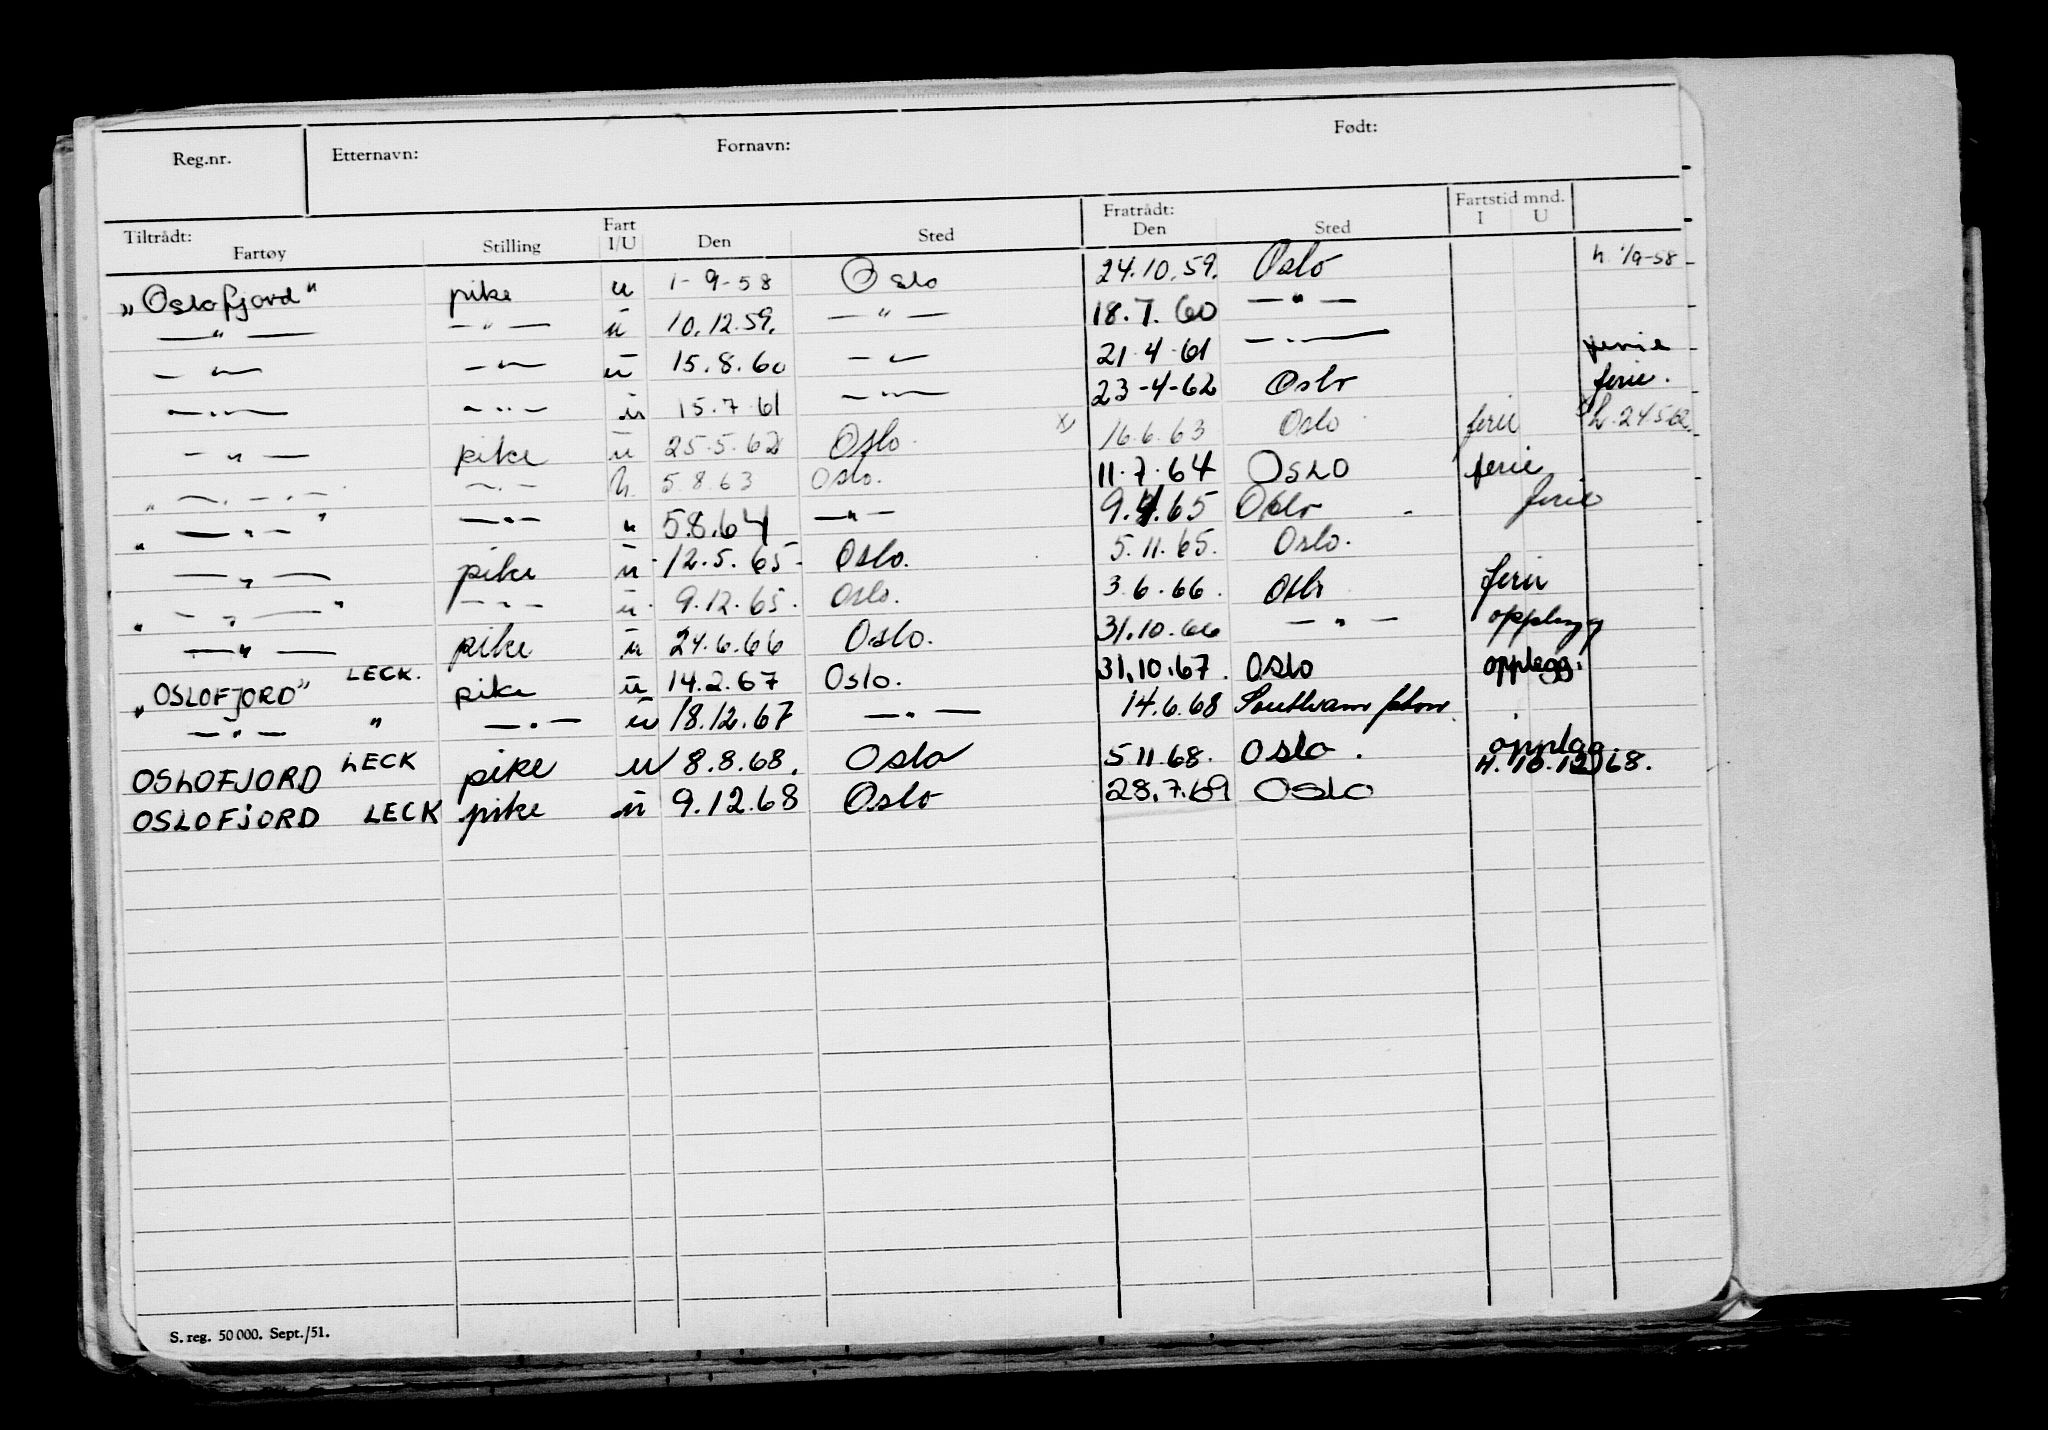 Reg.nr. Etternavn: Fornavn: Født:
Tiltrådt: Fratrådt: Fartstid mnd.
Fartøy Stilling Fart I/U Den Sted Den Sted I U
„Oslofjord" pike u 1-9-58 Oslo 24.10.59. Oslo h. 1/9-58
—"— —"— u 10.12.59. —"— 18.7.60 —"—
—"— —"— u 15.8.60 —"— 21.4.61 —"— ferie
—"— —"— u 15.7.61 —"— 23-4-62 Oslo ferie.
—"— pike u 25.5.62 Oslo. x) 16.6.63 Oslo ferie x) h. 24.5.62.
„—"—" —"— h. 5.8.63 Oslo. 11.7.64 OSLO ferie
„—"—" —"— u 5.8.64 —"— 9.4.65 Oslo ferie
—"— pike u 12.5.65 Oslo. 5.11.65. Oslo.
„—"—" —"— u 9.12.65. Oslo. 3.6.66. Oslo ferie
—"— pike u 24.6.66 Oslo. 31.10.66 —"— opplegg
„OSLOFJORD" LECK. pike u 14.2.67 Oslo. 31.10.67. Oslo opplegg.
—"— " —"— u 18.12.67 —"— 14.6.68 Southampton.
OSLOFJORD LECK pike u 8.8.68. Oslo 5.11.68. Oslo. opplag
H. 10.12.68.
OSLOFJORD LECK pike u 9.12.68 Oslo 28.7.69 Oslo
S. reg. 50 000. Sept./51.